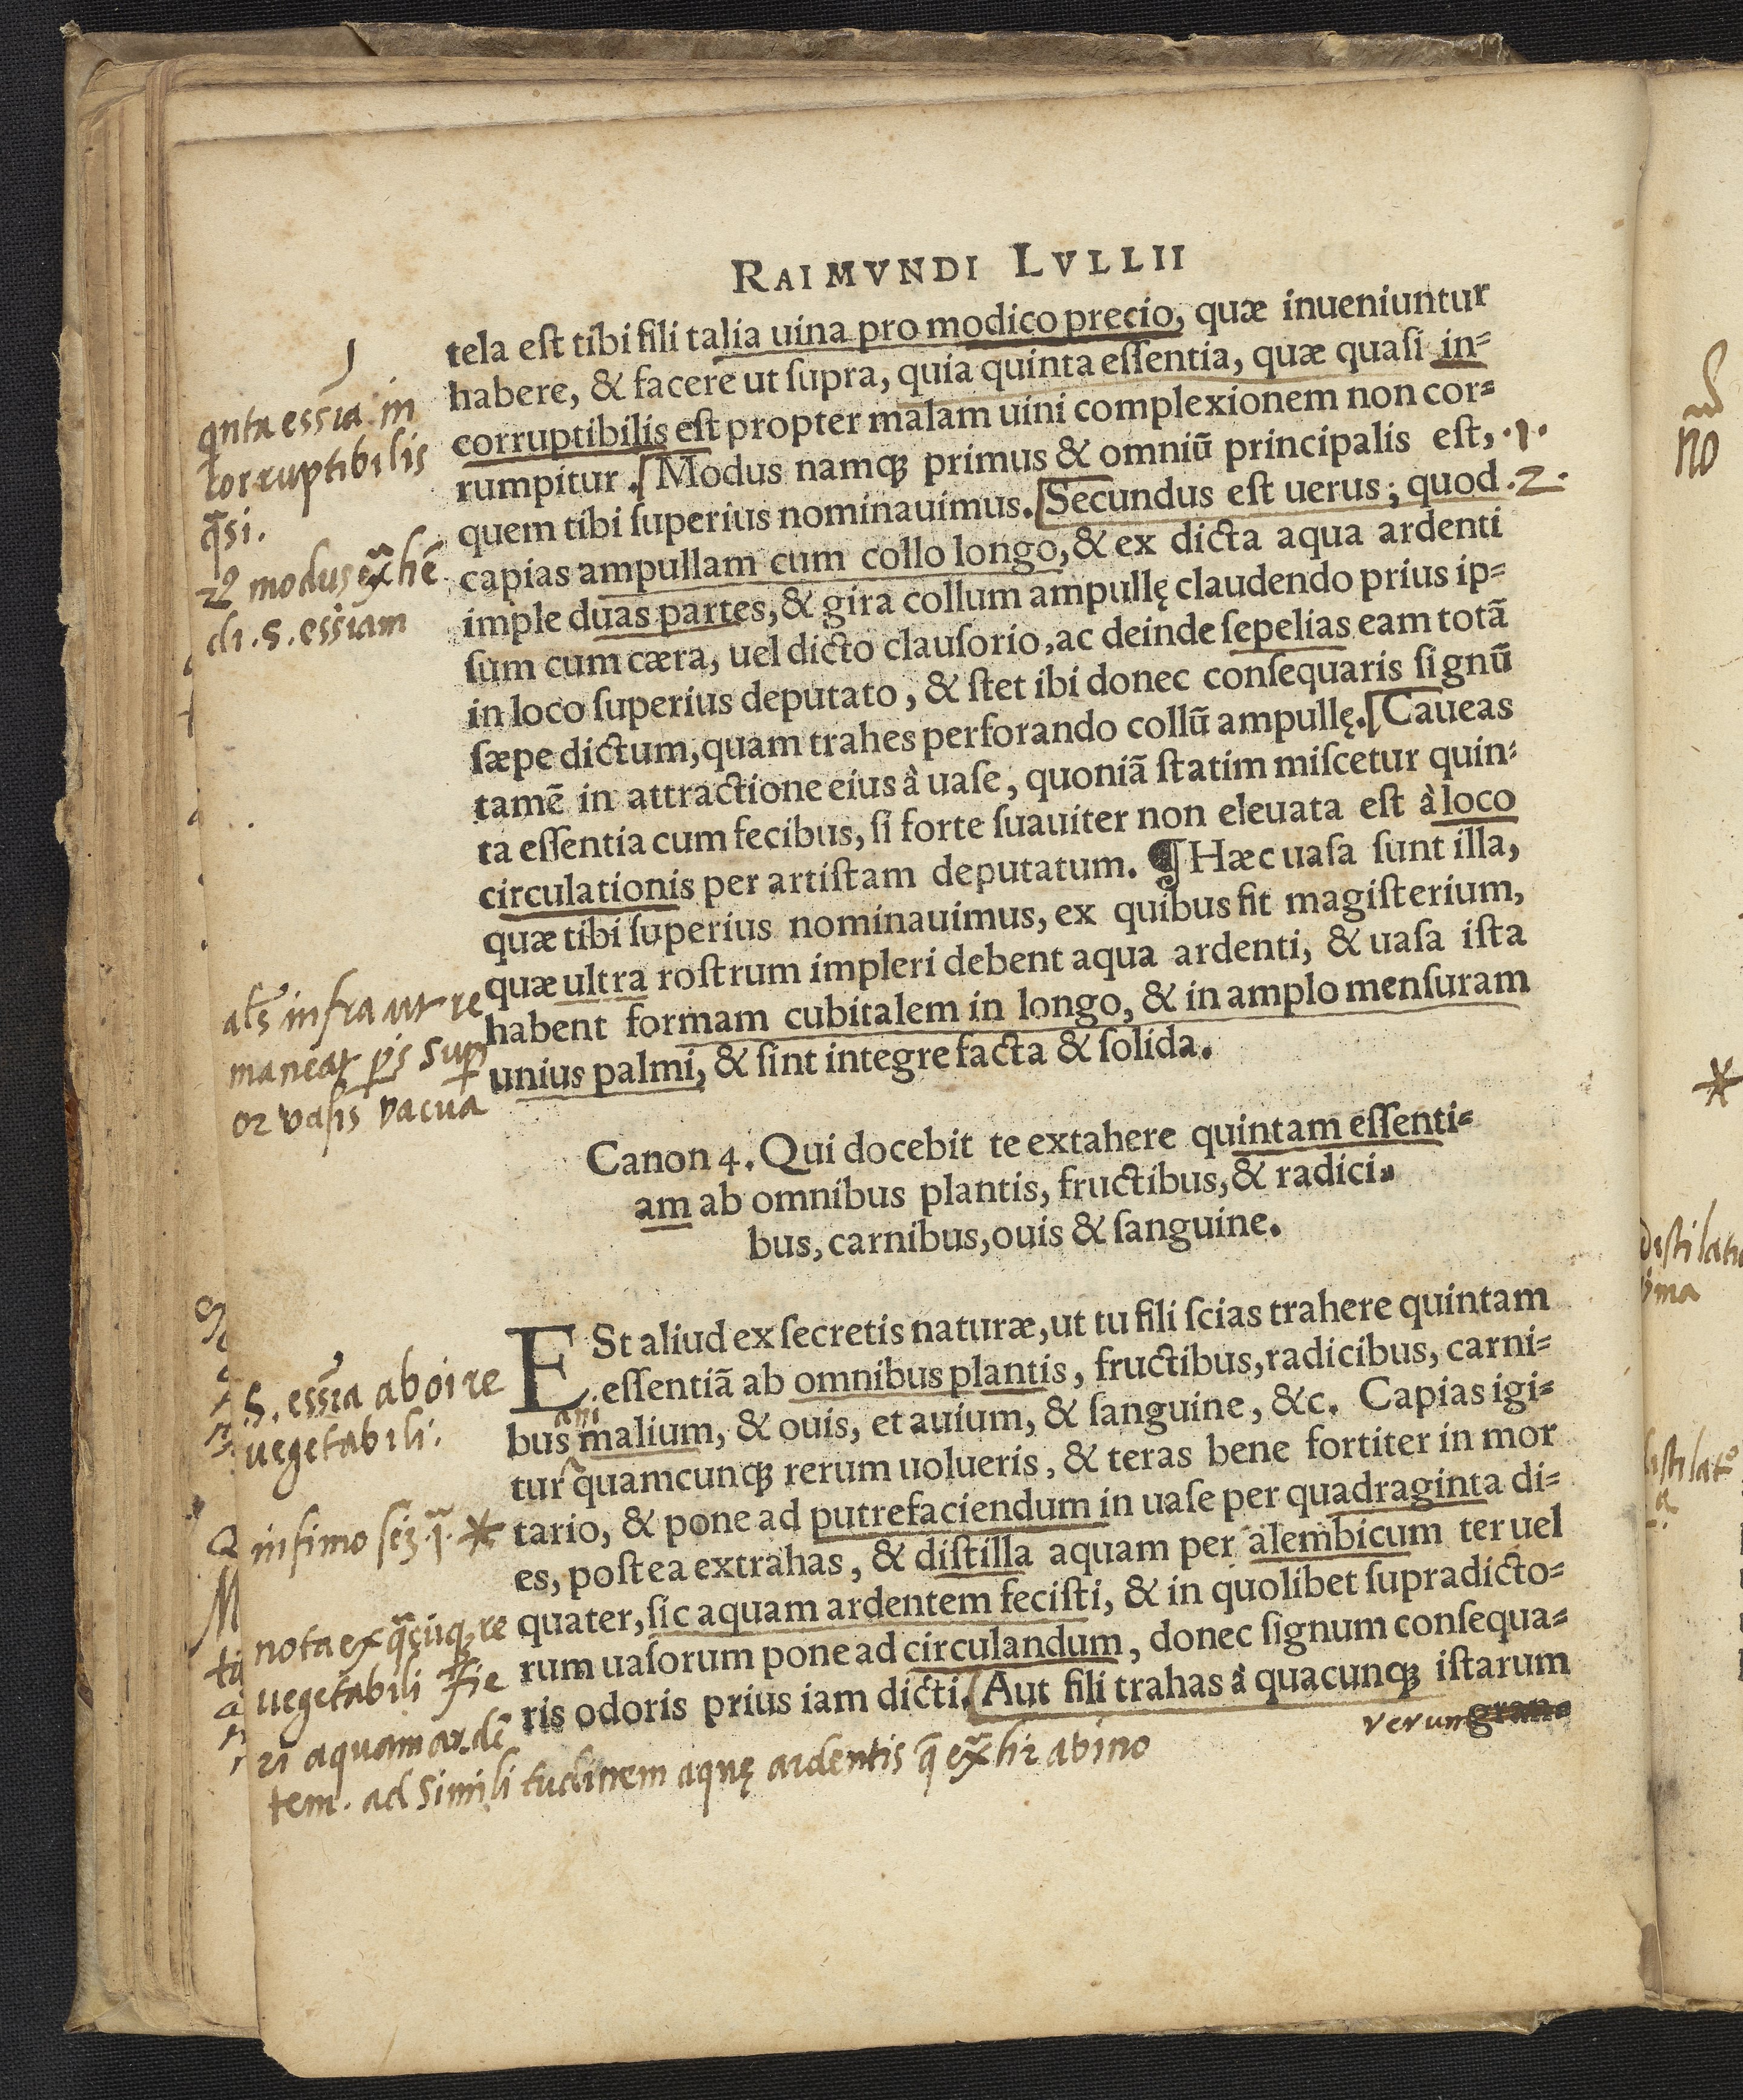 RAIMVNDI LVLLII
tela eſt tibi fili talia uina pro modico precio, quæ inueniuntur
habere, & facere ut ſupra, quia quinta eſſentia, quæ quaſi in-
corruptibilis eſt propter malam uini complexionem non cor-
rumpitur. Modus namqꝫ primus & omniū principalis eſt, ·1·
quem tibi ſuperius nominauimus. Secundus eſt uerus; quod ·2·
capias ampullam cum collo longo, & ex dicta aqua ardenti
imple duas partes, & gira collum ampullę claudendo prius ip-
ſum cum cæra, uel dicto clauſorio, ac deinde ſepelias eam totā
in loco ſuperius deputato, & ſtet ibi donec conſequaris ſignū
ſæpe dictum, quam trahes perforando collū ampullę. Caueas
tamē in attractione eius à uaſe, quoniā ſtatim miſcetur quin-
ta eſſentia cum fecibus, ſi forte ſuauiter non eleuata eſt à loco
circulationis per artiſtam deputatum. ¶ Hæc uaſa ſunt illa,
quæ tibi ſuperius nominauimus, ex quibus fit magiſterium,
quæ ultra roſtrum impleri debent aqua ardenti, & uaſa iſta
habent formam cubitalem in longo, & in amplo menſuram
unius palmi, & ſint integre facta & ſolida.
Canon 4. Qui docebit te extahere quintam eſſenti-
am ab omnibus plantis, fructibus, & radici-
bus, carnibus, ouis & ſanguine.
ESt aliud ex ſecretis naturæ, ut tu fili ſcias trahere quintam
eſſentiā ab omnibus plantis, fructibus, radicibus, carni-
ani
bus malium, & ouis, et auium, & ſanguine, &c. Capias igi-
tur quamcunqꝫ rerum uolueris, & teras bene fortiter in mor
tario, & pone ad putrefaciendum in uaſe per quadraginta di-
es, poſtea extrahas, & diſtilla aquam per alembicum ter uel
quater, ſic aquam ardentem feciſti, & in quolibet ſupradicto-
rum uaſorum pone ad circulandum, donec ſignum conſequa-
ris odoris prius iam dicti. Aut fili trahas à quacunqꝫ iſtarum
rerum gran-
qnta essīa in
corruptibilis
q̄si.
2º modus ex̄hē
di .5. essīam
infra ut re
maneat ps sup
or vasis vacua
.5. essīa ab oī re
uegetabili.
in fimo *
nota ex q̄cūqꝫ re
uegetabili fie
ri aquam ardē
tem. ad similitudinem aquę ardentis q̄ ex̄hr a vino
no
*